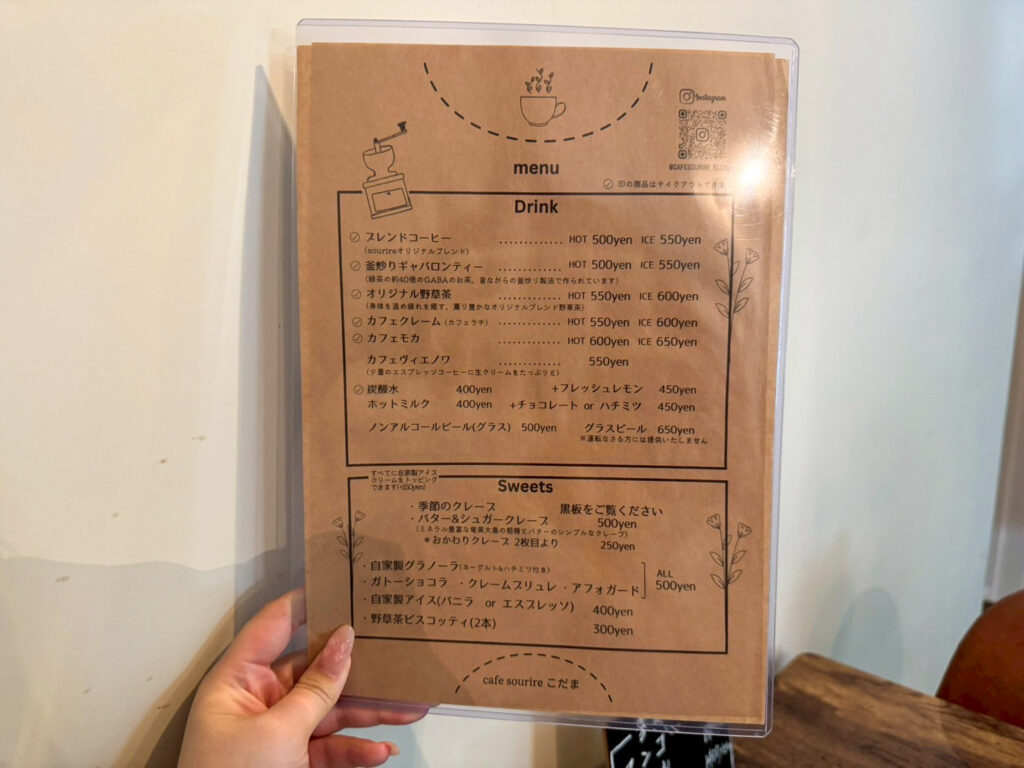 Instagram
menu
印の商品はテイクアウトできます
Drink
ブレンドコーヒー ............. HOT 500yen ICE 550yen
(sourireオリジナルブレンド)
釜炒りギャバロンティー ............. HOT 500yen ICE 550yen
(緑茶の約40倍のGABAのお茶。昔ながらの釜炒り製法で作られています)
オリジナル野草茶 ............. HOT 550yen ICE 600yen
(身体を温め疲れを癒す、薫り豊かなオリジナルブレンド野草茶)
カフェクレーム(カフェラテ) ............. HOT 550yen ICE 600yen
カフェモカ ............. HOT 600yen ICE 650yen
カフェヴィエノワ ............. 550yen
(少量のエスプレッソコーヒーに生クリームをたっぷりと)
炭酸水 400yen +フレッシュレモン 450yen
ホットミルク 400yen +チョコレート or ハチミツ 450yen
ノンアルコールビール(グラス) 500yen グラスビール 650yen
※運転なさる方には提供いたしません
すべてに自家製アイス
クリームをトッピング
できます(+150yen)
Sweets
・季節のクレープ 黒板をご覧ください
・バター&シュガークレープ 500yen
(ミネラル豊富な奄美大島の粗糖とバターのシンプルなクレープ)
＊おかわりクレープ 2枚目より 250yen
・自家製グラノーラ(ヨーグルト&ハチミツ付き)
・ガトーショコラ ・クレームブリュレ ・アフォガード
ALL
500yen
・自家製アイス(バニラ or エスプレッソ) 400yen
・野草茶ビスコッティ(2本) 300yen
cafe sourire こだま